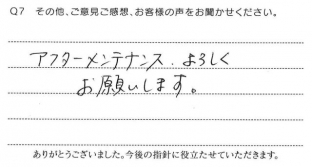 Q7 その他、ご意見ご感想、お客様の声をお聞かせください。
アフターメンテナンス．よろしく
お願いします。
ありがとうございました。今後の指針に役立たせていただきます。